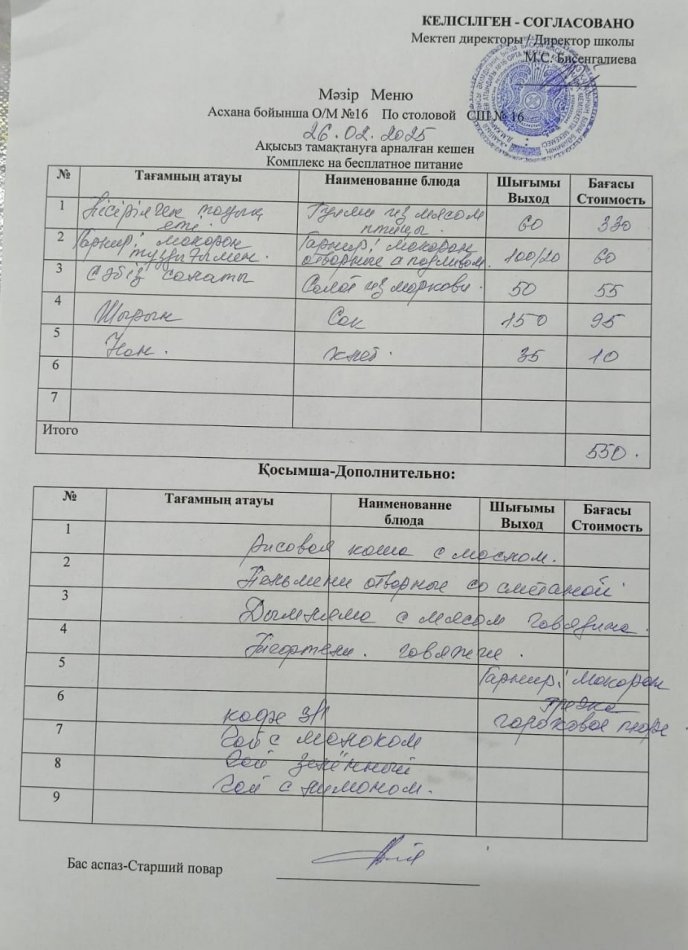 КЕЛІСІЛГЕН - СОГЛАСОВАНО
Мектеп директоры / Директор школы
М.С. Бисенгалиева
Мәзір Меню
Асхана бойынша О/М №16 По столовой СШ № 16
26.02.2025
Ақысыз тамақтануға арналған кешен
Комплекс на бесплатное питание
№ Тағамның атауы Наименование блюда Шығымы Выход Бағасы Стоимость
1 Пісірілген тауық еті из мясом птицы. 60 330
2 Гарнир: макарон тұздығымен. Гарнир: макарон отворные с подливом. 100/20 60
3 Сәбіз салаты Салат из моркови. 50 55
4 Шырын Сок 150 95
5 Нан. хлеб. 35 10
6
7
Итого 550.
Қосымша-Дополнительно:
№ Тағамның атауы Наименование блюда Шығымы Выход Бағасы Стоимость
1 Рисовая каша с маслом.
2 Пельмени отворные со сметаной
3 Дымляма с мясом говядина.
4 говяжие.
5 Гарнир: Макарон
6 гречка
кофе 3/1 гороховое пюре.
7 Чай с молоком
8 Чай зелённый
Чай с лимоном.
9
Бас аспаз-Старший повар